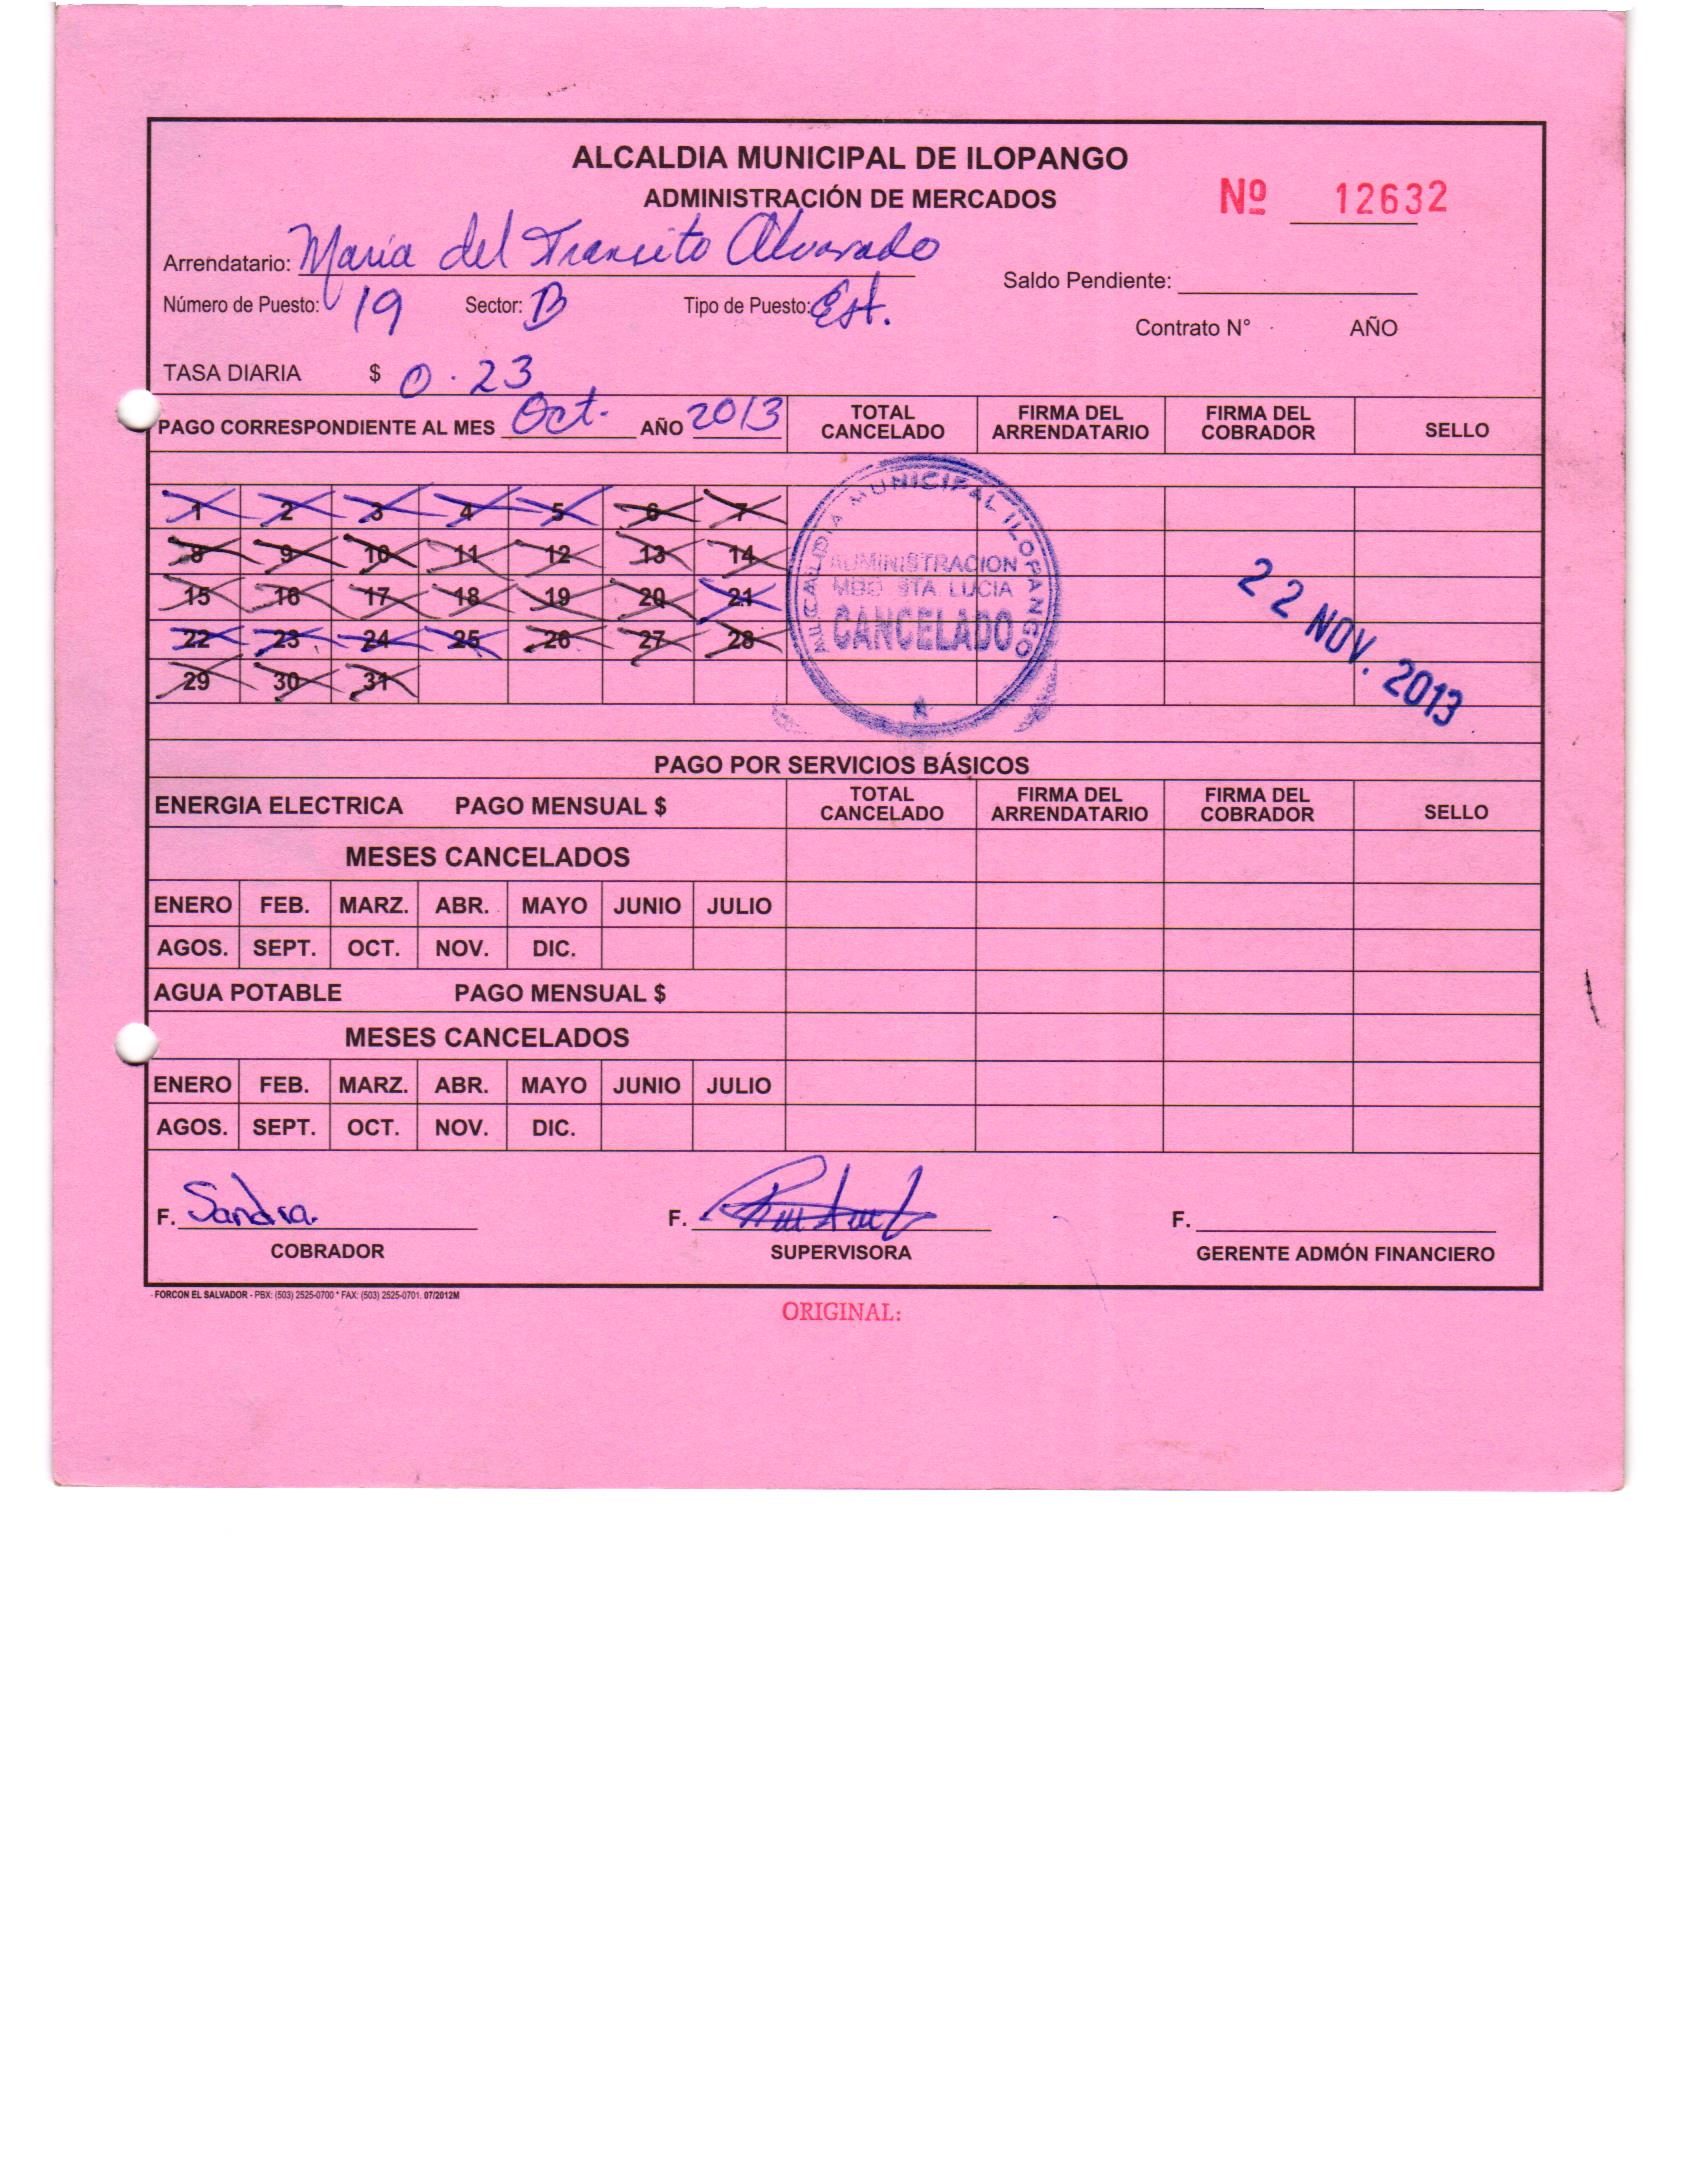 ALCALDIA MUNICIPAL DE ILOPANGO
ADMINISTRACIÓN DE MERCADOS
Nº 12632
Arrendatario: Maria del Transito Alvarado
Saldo Pendiente:
Número de Puesto: 19 Sector: B Tipo de Puesto: Est.
Contrato N° AÑO
TASA DIARIA $ 0.23
PAGO CORRESPONDIENTE AL MES Oct. AÑO 2013 TOTAL CANCELADO FIRMA DEL ARRENDATARIO FIRMA DEL COBRADOR SELLO
1 2 3 4 5 6 7
8 9 10 11 12 13 14
15 16 17 18 19 20 21
22 23 24 25 26 27 28
29 30 31
ALCALDIA MUNICIPAL ILOPANGO
ADMINISTRACION
STA. LUCIA
CANCELADO
22 NOV. 2013
PAGO POR SERVICIOS BÁSICOS
ENERGIA ELECTRICA PAGO MENSUAL $ TOTAL CANCELADO FIRMA DEL ARRENDATARIO FIRMA DEL COBRADOR SELLO
MESES CANCELADOS
ENERO FEB. MARZ. ABR. MAYO JUNIO JULIO
AGOS. SEPT. OCT. NOV. DIC.
AGUA POTABLE PAGO MENSUAL $
MESES CANCELADOS
ENERO FEB. MARZ. ABR. MAYO JUNIO JULIO
AGOS. SEPT. OCT. NOV. DIC.
F. Sandra. F. F.
COBRADOR SUPERVISORA GERENTE ADMÓN FINANCIERO
FORCON EL SALVADOR - PBX: (503) 2525-0700 * FAX: (503) 2525-0701. 07/2012M
ORIGINAL: